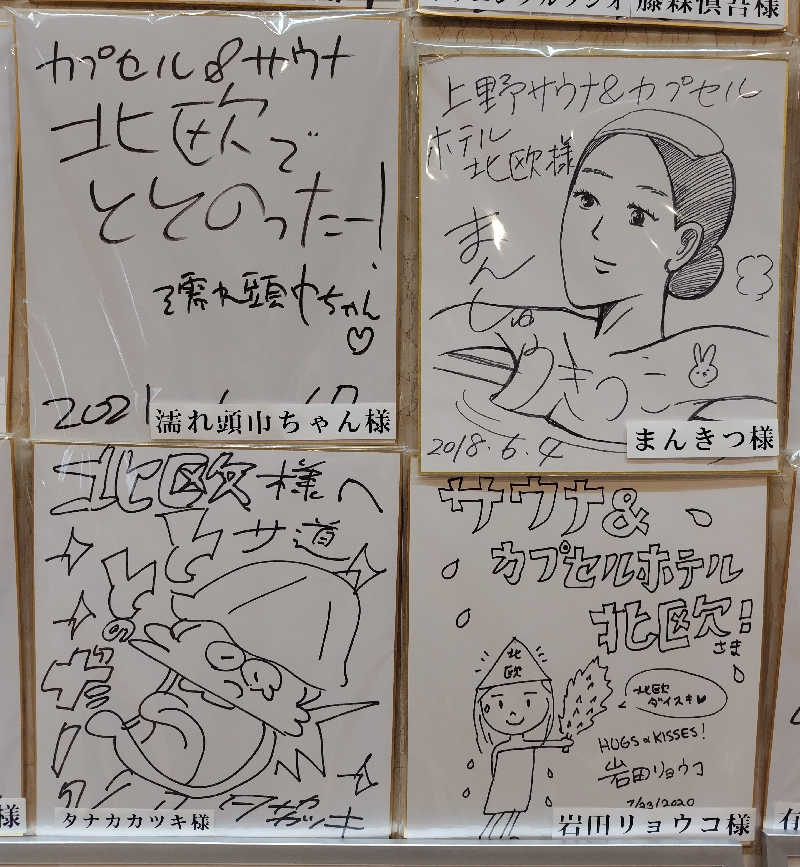 藤森慎吾様
カプセル&サウナ
北欧で
ととのったー!
濡れ頭巾ちゃん♡
2021
濡れ頭巾ちゃん様
上野サウナ&カプセル
ホテル
北欧様
まん
しゅう
きつこ
2018.6.4
まんきつ様
北欧様へ
サ道
ととのったー
タナカカツキ
タナカカツキ様
サウナ&
カプセルホテル
北欧!
さま
北
欧
北欧
ダイスキ♥
HUGS & KISSES!
岩田リョウコ
7/23/2020
岩田リョウコ様
様